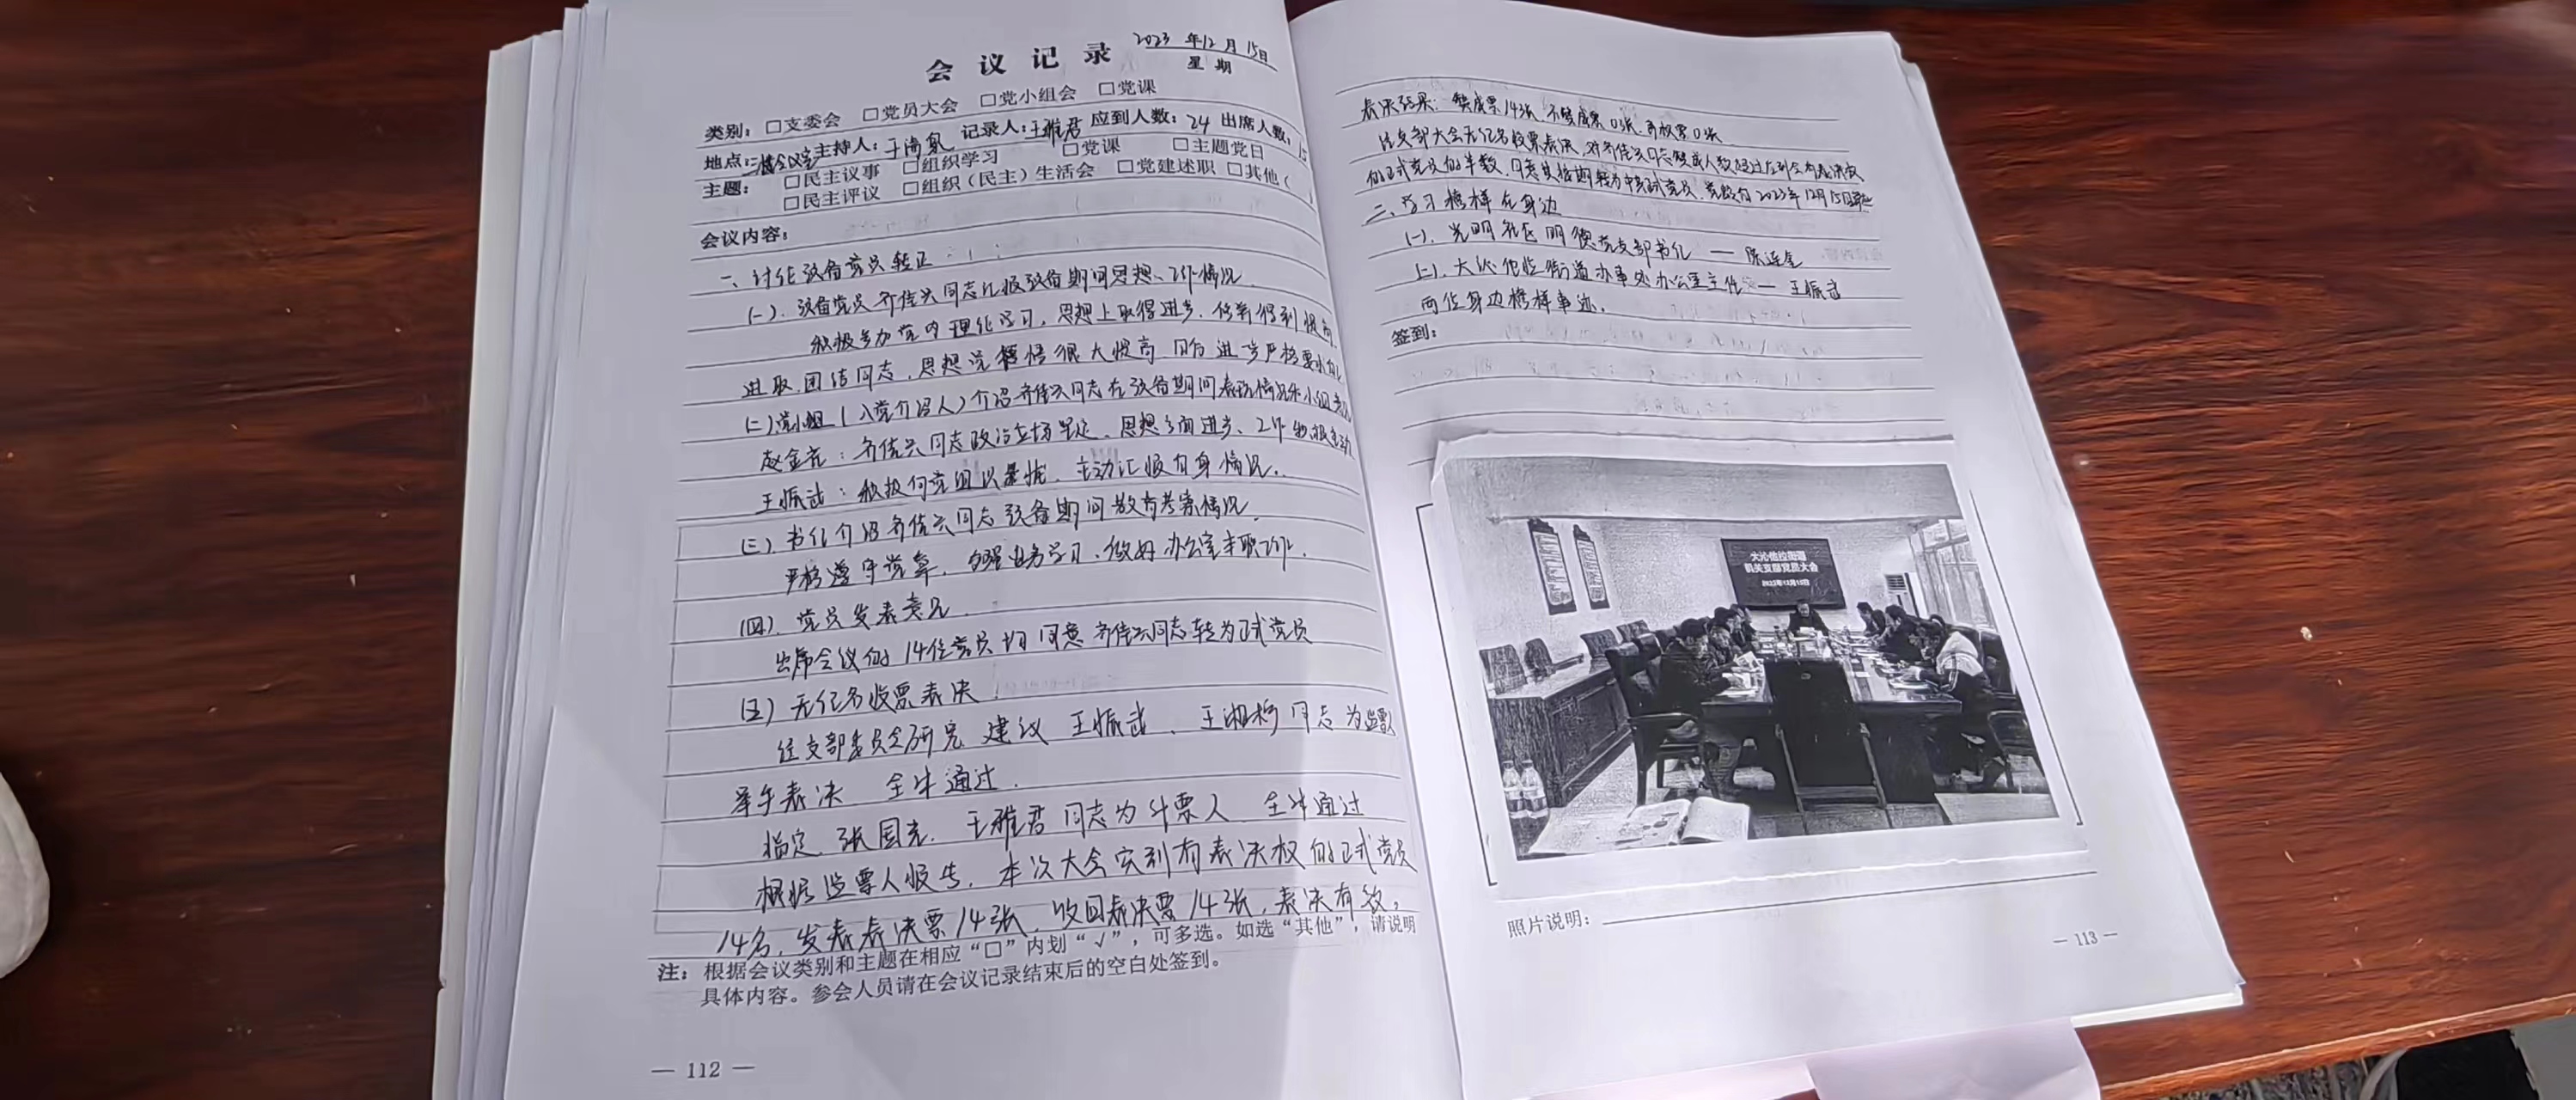 会议记录
2023年12月15日
星期
类别：□支委会 □党员大会 □党小组会 □党课
地点：三楼会议室 主持人： 记录人：王雅君 应到人数：24 出席人数：15
主题：□民主议事 □组织学习 □党课 □主题党日
□民主评议 □组织（民主）生活会 □党建述职 □其他（
会议内容：
一、讨论预备党员转正
(一)．预备党员齐佳兴同志汇报预备期间思想、工作情况．
积极参加党内理论学习，思想上取得进步．
进取．团结同志，思想觉悟很大提高
(二)党小组（入党介绍人）介绍齐佳兴同志在预备期间表现情况和小组意见
赵金亮：齐佳兴同志政治立场坚定、思想方面进步、工作积极主动
王振武：积极向党组织靠拢．主动汇报自身情况．
(三)．书记介绍齐佳兴同志预备期间教育考察情况．
严格遵守党章，加强业务学习．做好办公室本职工作．
(四)．党员发表意见．
出席会议的14位党员均同意齐佳兴同志转为正式党员
(五) 无记名投票表决．
经支部委员会研究 建议 王振武、王湘杉同志为监票人
举手表决 全牛通过．
指定 张国亮．王雅君同志为计票人 全牛通过
根据监票人报告，本次大会实到有表决权的正式党员
14名，发表表决票14张，收回表决票14张，表决有效。
注：根据会议类别和主题在相应“□”内划“√”，可多选。如选“其他”，请说明
具体内容。参会人员请在会议记录结束后的空白处签到。
— 112 —
表决结果：赞成票14张．不赞成票0张．弃权票0张．
经支部大会无记名投票表决，对齐佳兴同志赞成人数超过应到会有表决权
的正式党员的半数，同意其按期转为中共正式党员，党龄自2023年12月15日算起
二、学习榜样在身边
(一)．光明社区明德党支部书记 — 陈连金
(二)．大沁他拉街道办事处办公室主任 — 王振武
两位身边榜样事迹．
签到：
大沁他拉街道
机关支部党员大会
2023年12月15日
照片说明：
— 113 —